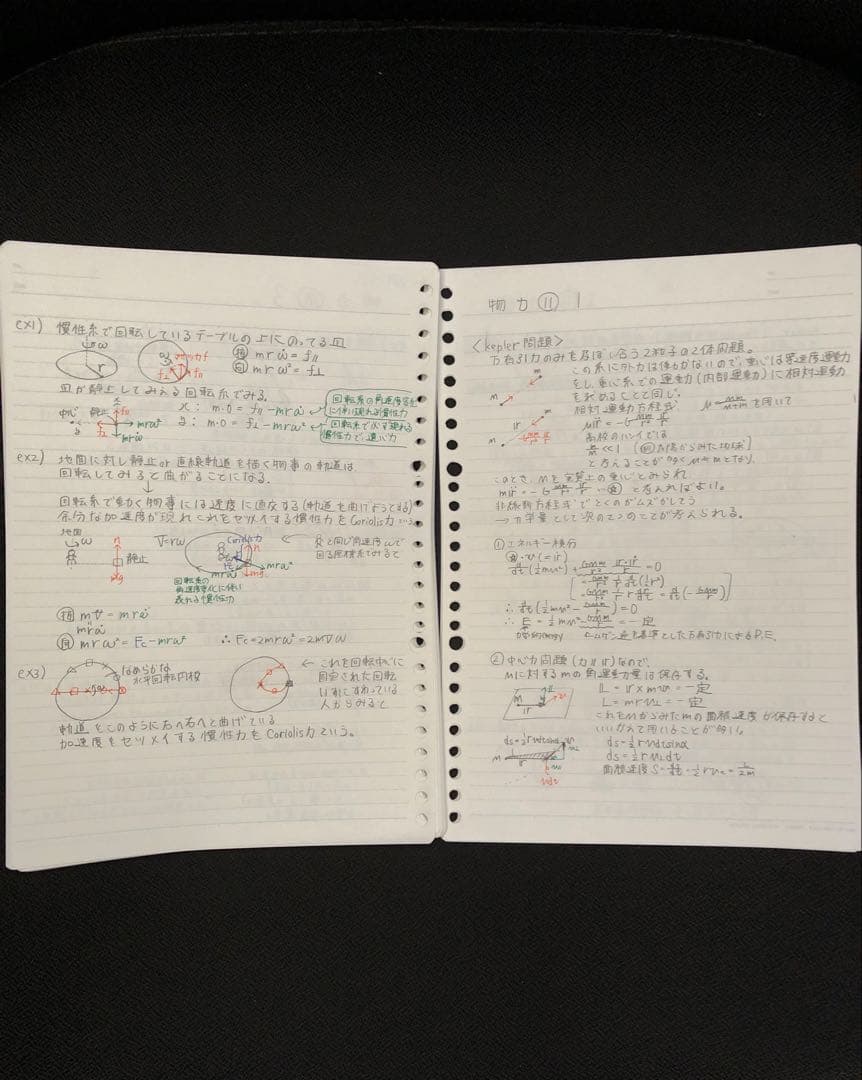 ex1) 慣性系で回転しているテーブルの上にのってる皿
ω
r
f
f⊥ f∥
接 mrω̇ = f∥
向 mrω² = f⊥
皿が静止してみえる回転系でみる。
静止
x: m・0 = f∥ - mrω̇
y: m・0 = f⊥ - mrω²
mrω²
mrω̇
慣性力で、遠心力
ex2) 地面に対し静止or直線軌道を描く物事の軌道は
回転してみると曲がることになる。
↓
回転系で動く物事には速度に適応する(軌道を曲げようとする)
余分な加速度が現れこれをセツメイする慣性力をCoriolis力という
地面
ω
静止
mg
V=rω
Coriolis力
mrω²
mg
回転系の
角速度変化に伴い
表れる慣性力
同じ角速度ωで
回る座標系でみると
接 mV̇ = mrω̇
mrω̇
向 mrω² = Fc - mrω²
∴ Fc = 2mrω² = 2mVω
ex3)
なめらかな
水平回転円板
← これを回転中心に
固定された回転
いすにすわっている
人からみると
軌道をこのように右へ右へと曲げている
加速度をセツメイする慣性力をCoriolis力という。
物力 ⑪ 1
<kepler問題>
万有引力のみを及ぼし合う2粒子の2体問題。
この系に外力は働かないので、重心は等速度運動
をし重心系での運動(内部運動)は相対運動
をわめることと同じ。
相対運動方程式 μ = Mm/M+m を用いて
m
M
高校のハンイでは
m/M ≪ 1
と考えることが多く μ≒mとなり、
このとき、Mを実質上の重心とみられ、
と考えればよい。
非線形方程式でとくのがムズかしそう
→力学量として次の2つのことが考えられる。
① エネルギー積分
d/dt(½mv²) + GMm/r² r・ṙ/r = 0
∴ d/dt(½mv² - GMm/r) = 0
∴ E = ½mv² - GMm/r = 一定
力学的energy
無限遠を基準とした万有引力によるP.E.
② 中心力問題(力∥r)なので、
Mに対するmの角運動量は保存する。
L = r × mv = 一定
L = mrv⊥ = 一定
これをMからみたmの面積速度が保存すると
いいかえて用いることが多い。
ds = ½rvdtsinα
ds = ½rv⊥dt
面積速度 S = ds/dt = ½rv⊥ = L/2m
vdt